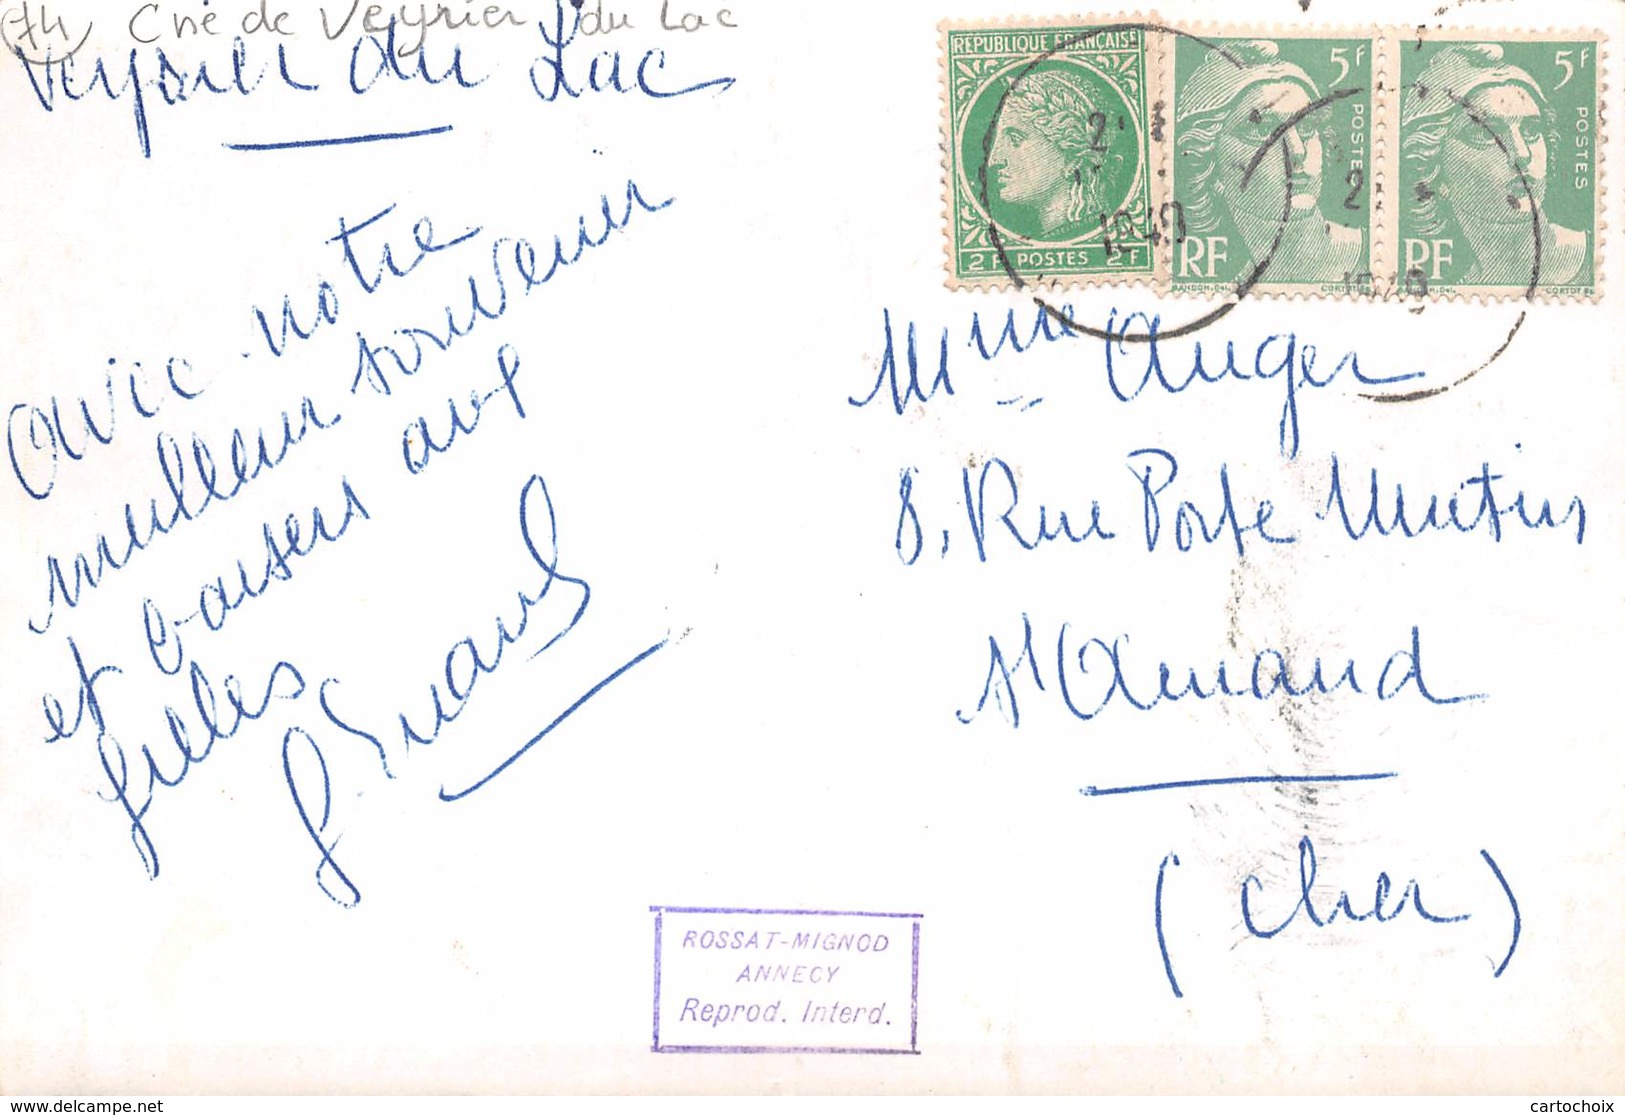 74 Cne de Veyrier du Lac
Veyrier du Lac
avec notre
meilleur souvenir
et baisers aux
filles
RÉPUBLIQUE FRANÇAISE
2F POSTES 2F
5F
POSTES
RF
5F
POSTES
RF
Mme Auger
8, Rue Porte Mutin
St Amand
(Cher)
ROSSAT-MIGNOD
ANNECY
Reprod. Interd.
cartochoix